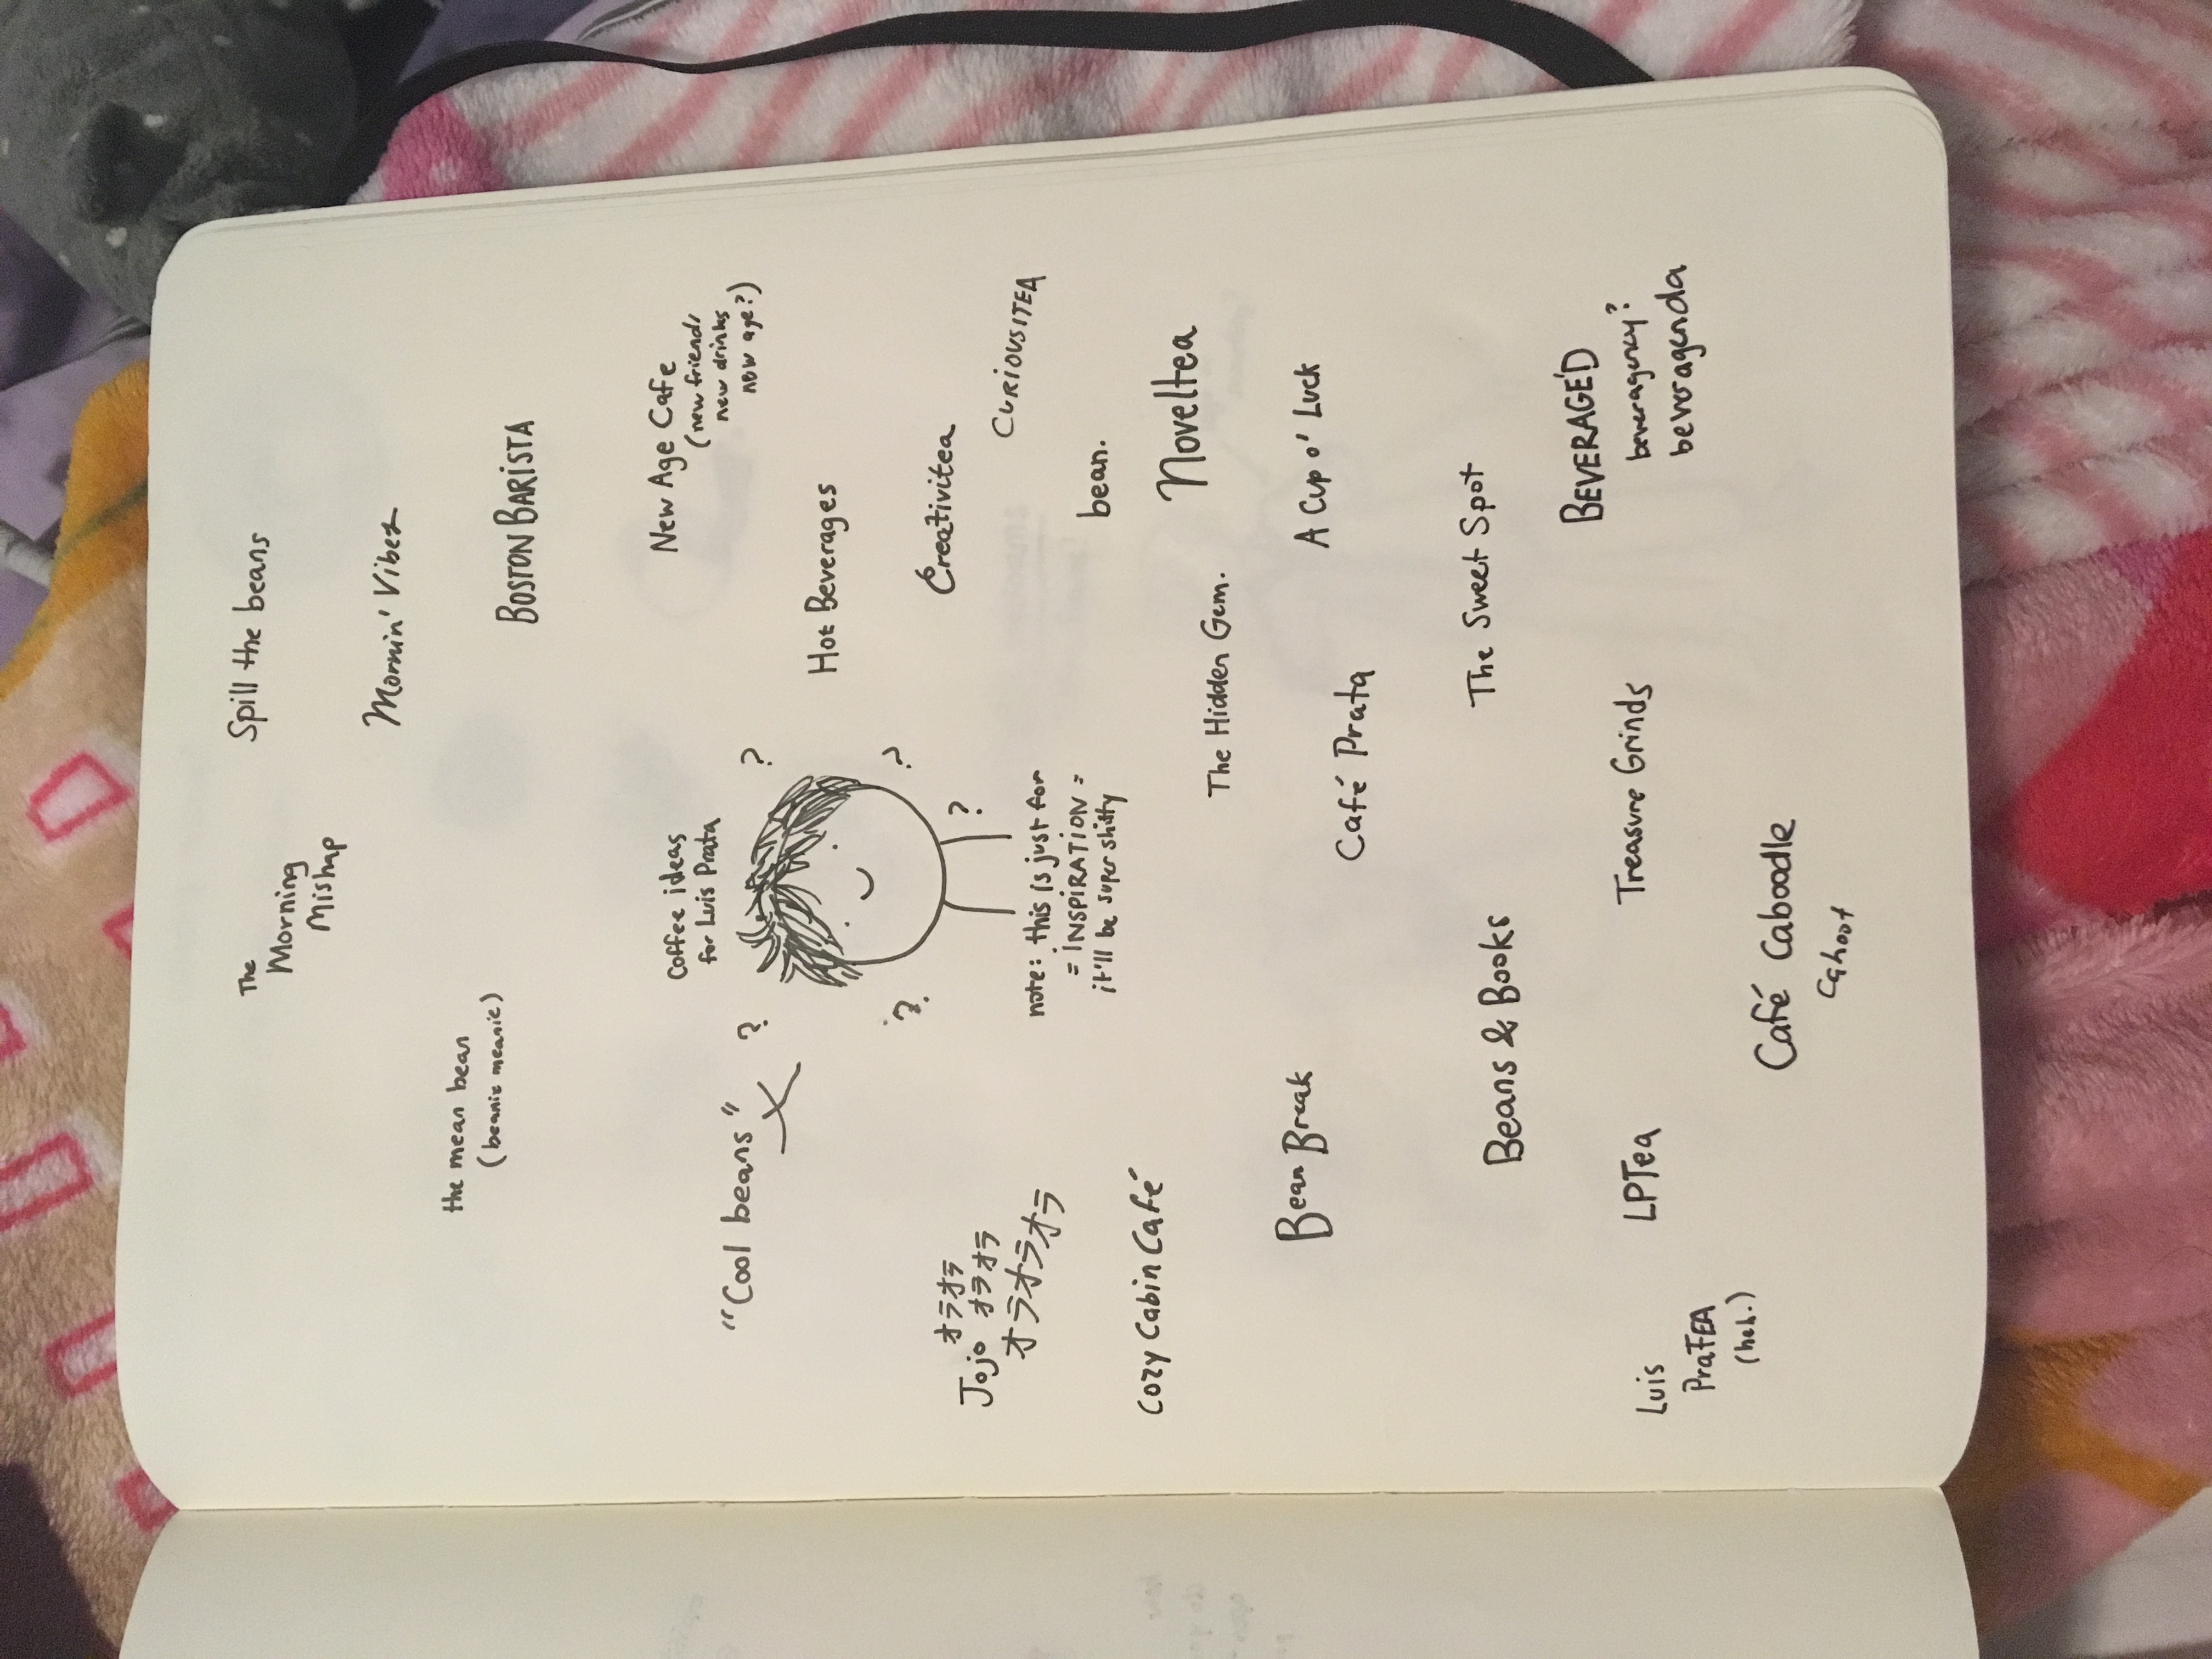 The
Morning
Mishap
Spill the beans
Mornin' Vibez
the mean bean
(beanie meanie)
BOSTON BARISTA
Coffee ideas
for Luis Prata
New Age Cafe
(new friends
new drinks
new age?)
"Cool beans"
? ?
Hot Beverages
? ?
?
Creativitea
オラオラ
Jojo オラオラ
オラオラオラ
CURIOUSITEA
note: this is just for
= INSPIRATION =
it'll be super shitty
bean.
Cozy Cabin Café
Noveltea
The Hidden Gem.
Bean Break
A Cup o' Luck
Café Prata
The Sweet Spot
Beans & Books
BEVERAGE'D
beveragency?
beveragenda
Treasure Grinds
LPTea
Luis
PraTEA
(heh.)
Café Caboodle
Cahoot